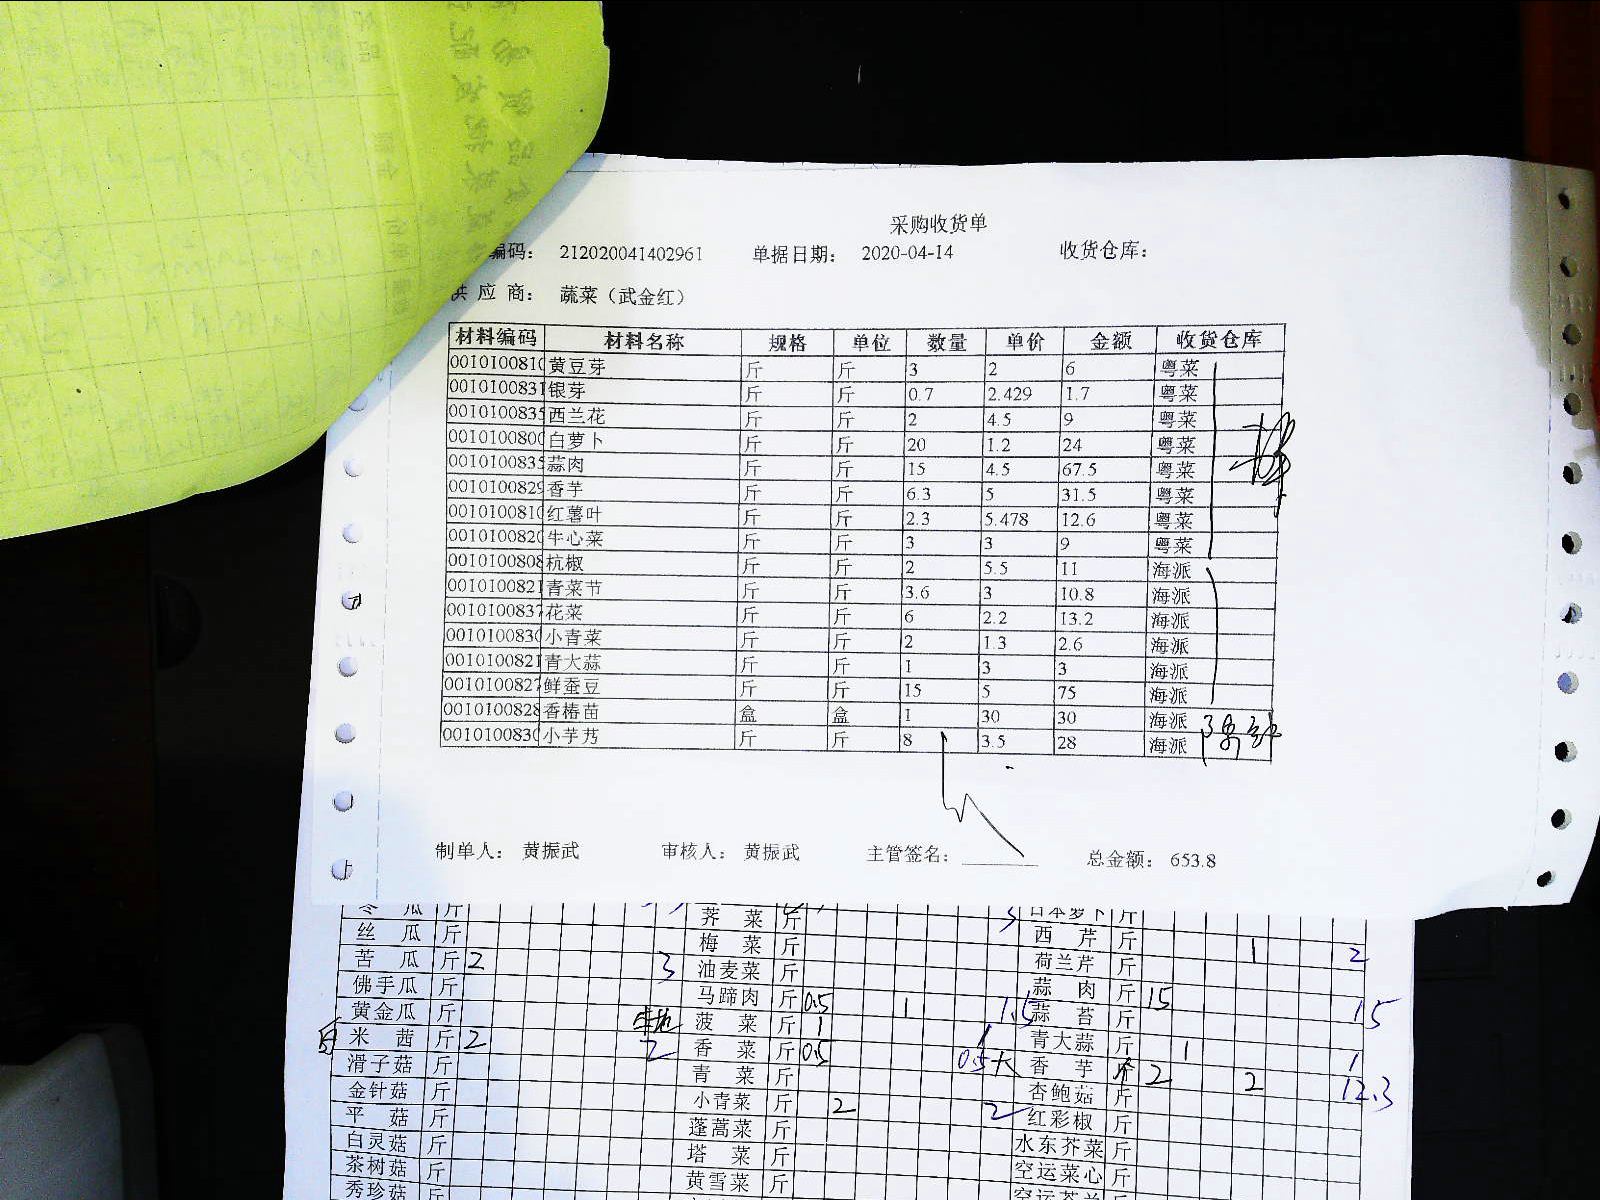 采购收货单
编码： 212020041402961 单据日期： 2020-04-14 收货仓库：
供 应 商： 蔬菜（武金红）
材料编码 材料名称 规格 单位 数量 单价 金额 收货仓库
001010081 黄豆芽 斤 斤 3 2 6 粤菜
0010100831 银芽 斤 斤 0.7 2.429 1.7 粤菜
0010100835 西兰花 斤 斤 2 4.5 9 粤菜
001010080 白萝卜 斤 斤 20 1.2 24 粤菜
0010100835 蒜肉 斤 斤 15 4.5 67.5 粤菜
0010100829 香芋 斤 斤 6.3 5 31.5 粤菜
001010081 红薯叶 斤 斤 2.3 5.478 12.6 粤菜
001010082 牛心菜 斤 斤 3 3 9 粤菜
0010100808 杭椒 斤 斤 2 5.5 11 海派
0010100821 青菜节 斤 斤 3.6 3 10.8 海派
0010100837 花菜 斤 斤 6 2.2 13.2 海派
001010083 小青菜 斤 斤 2 1.3 2.6 海派
0010100821 青大蒜 斤 斤 1 3 3 海派
0010100827 鲜蚕豆 斤 斤 15 5 75 海派
0010100828 香椿苗 盒 盒 1 30 30 海派
001010083 小芋艿 斤 斤 8 3.5 28 海派
制单人： 黄振武 审核人： 黄振武 主管签名： 总金额： 653.8
冬 瓜 斤 荠 菜 斤 日本萝卜 斤
丝 瓜 斤 梅 菜 斤 西 芹 斤 1 2
苦 瓜 斤 2 3 油麦菜 斤 荷兰芹 斤
佛手瓜 斤 马蹄肉 斤 0.5 1 1.5 蒜 肉 斤 15 15
黄金瓜 斤 菠 菜 斤 1 1 蒜 苔 斤
米 茜 斤 2 2 香 菜 斤 0.5 0.5 青大蒜 斤 1 1
滑子菇 斤 青 菜 斤 大 香 芋 斤 2 2 12.3
金针菇 斤 小青菜 斤 2 2 杏鲍菇 斤
平 菇 斤 蓬蒿菜 斤 红彩椒 斤
白灵菇 斤 塔 菜 斤 水东芥菜 斤
茶树菇 斤 黄雪菜 斤 空运菜心 斤
秀珍菇 斤